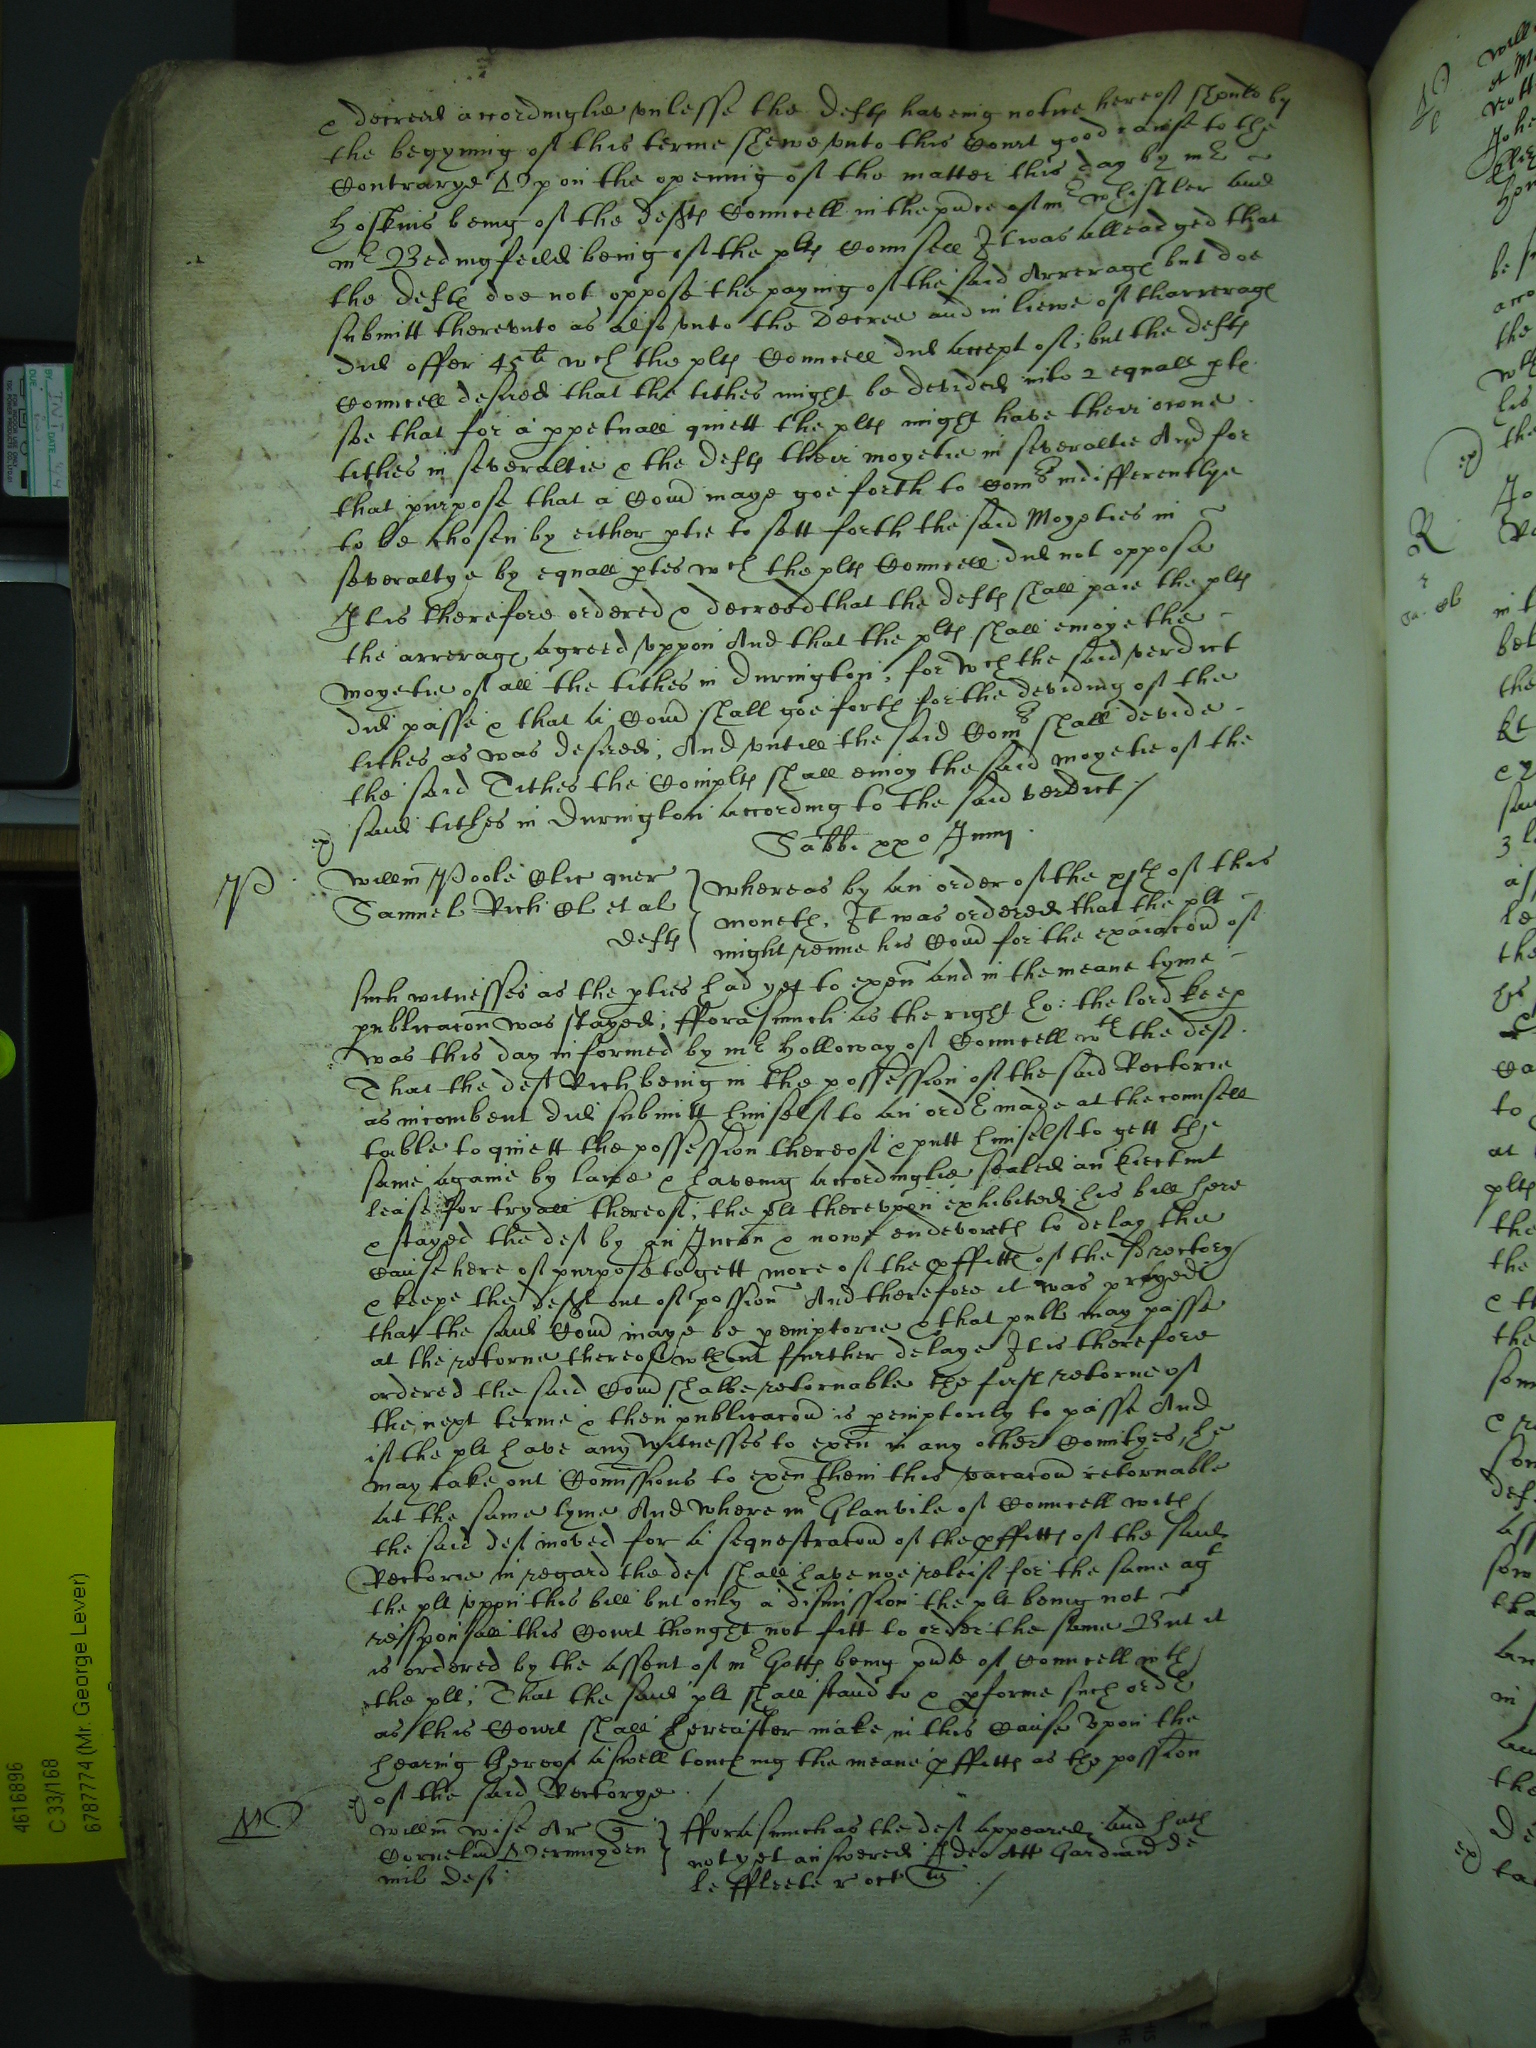 & decreed accordinglie vnlesse the defts haveing notice hereof should by
the begynning of this terme shewe vnto this Court good cause to the
Contrarye Vpon the openinge of the matter this day by mr
Hoskins being of the defts Councell in the pnce of mr Whistler and
mr Bedingfeild being of the plts Counsell It was alleadged that
the defts doe not oppose the paying of the said Arrerages but doe
submitt therevnto as also vnto the Decree and in liewe of tharrerages
did offer 45li wch the plts Councell did accept of, but the defts
Councell desired that the tithes might be devided into 2 equall ptes
soe that for a ppetuall quiett the plts might have their owne
tithes in severaltie & the defts their moyetie in severaltie And for
that purpose that a Comd maye goe forth to Comrs indifferentlye
to be chosen by either ptie to sett forth the said Moyeties in
severaltye by equall ptes wch the plts Councell did not oppose
It is therefore ordered & decreed that the defts shall paie the plts
the arrerages agreed vppon And that the plts shall enioye the
moyetie of all the tithes in Durington, for wch the said verdict
did passe & that a Comd shall goe forth for the deviding of the
tithes as was desired, And vntill the said Comrs shall devide
the said Tithes the Complts shall enioy the said moyetie of the
said tithes in Durington according to the said verdict /
ex
Sabbi xxo Junij
P
Willm Poole Clic quer
Samuel Rich Cl et al
defts
Whereas by an order of the xjth of this
moneth, It was ordered that the plt
might renue his Comd for the exaiacond of
such witnesses as the pties had yet to exen and in the meane tyme
publicacon was stayed, fforasmuch as the right ho: the lord keep
was this day informed by mr Holloway of Councell wth the deft
That the deft Rich being in the possession of the said Rectorie
as incombent did submitt himself to an ordr made at the counsell
table to quiett the possession thereof & putt himself to gett the
same againe by lawe & haveing accordinglie sealed an Eiectmt
lease for tryall thereof, the plt therevpon exhibited his bill here
& stayed the deft by an Iniccon & nowe endevoreth to delay the
Cause here of purpose to gett more of the pffitts of the sd rectory
& keepe the deft out of possion And therefore it was prayed
that the said Comd maye be pemptorie & that publ may passe
at the retorne thereof wthout ffurther delaye It is therefore
ordered the said Comd shalbe retornable the first retorne of
the next terme & then publicacond is pemptorily to passe And
if the plt have any witnesses to exen in any other Countyes, he
may take out Comissions to exen them this vacacond retornable
at the same tyme And where mr Glanvile of Councell with
the said deft moved for a sequestracond of the pffitts of the said
Rectorie in regard the deft shall have noe releif for the same agt
the plt vppon this bill but only a dismission the plt being not
responsall this Court thought not fitt to order the same But it
is ordered by the assent of mr Gotts being pnte of Councell wth
the plt, That the said plt shall stand to & pforme such ordr
as this Court shall hereafter make in this Cause Vpon the
hearing thereof aswell touching the meane pffitts as the possion
of the said Rectorye . /
ex
W
Willm Wise Ar q
Cornelius Vermuyden
mil deft
fforasmuch as the deft appeared and hath
not yet answered Ideo Att Gardiand de
le ffleete r oct
BY: TNT
DUE
DATE
4616896
C 33/168
6787774 (Mr. George Lever)